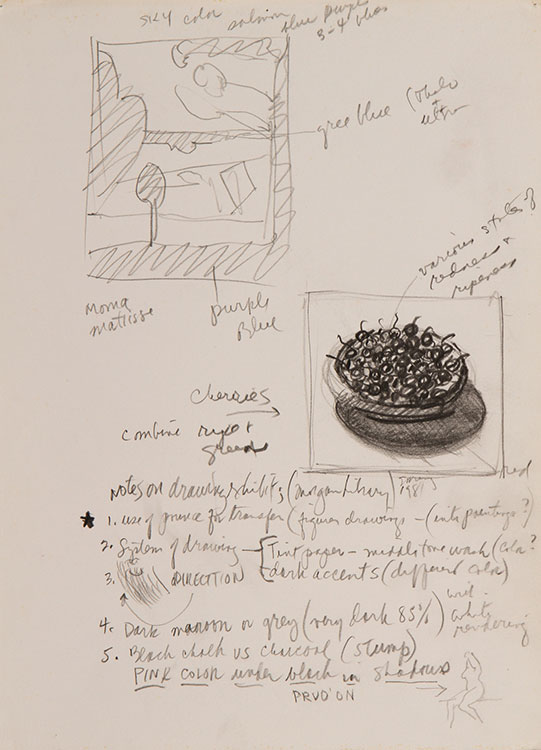 SKY color salmon blue purple
3-4 blues
gree blue (thalo
+
ultra
various states of
redness +
ripeness
Moma
matisse
purple
Blue
cherries
combine ripe +
green
Notes on drawing exhibit, (morgan Library)
1981
red
1. use of for transfer (figures drawings - (into paintings?)
2. System of drawing - Tint paper - middle tone wash (color?
3. DIRECTION dark accents (different color)
with
white
rendering
4. Dark maroon or grey (very dark 85%)
5. Black chalk vs charcoal (stump)
PINK COLOR under black in shadows
PRUD'ON